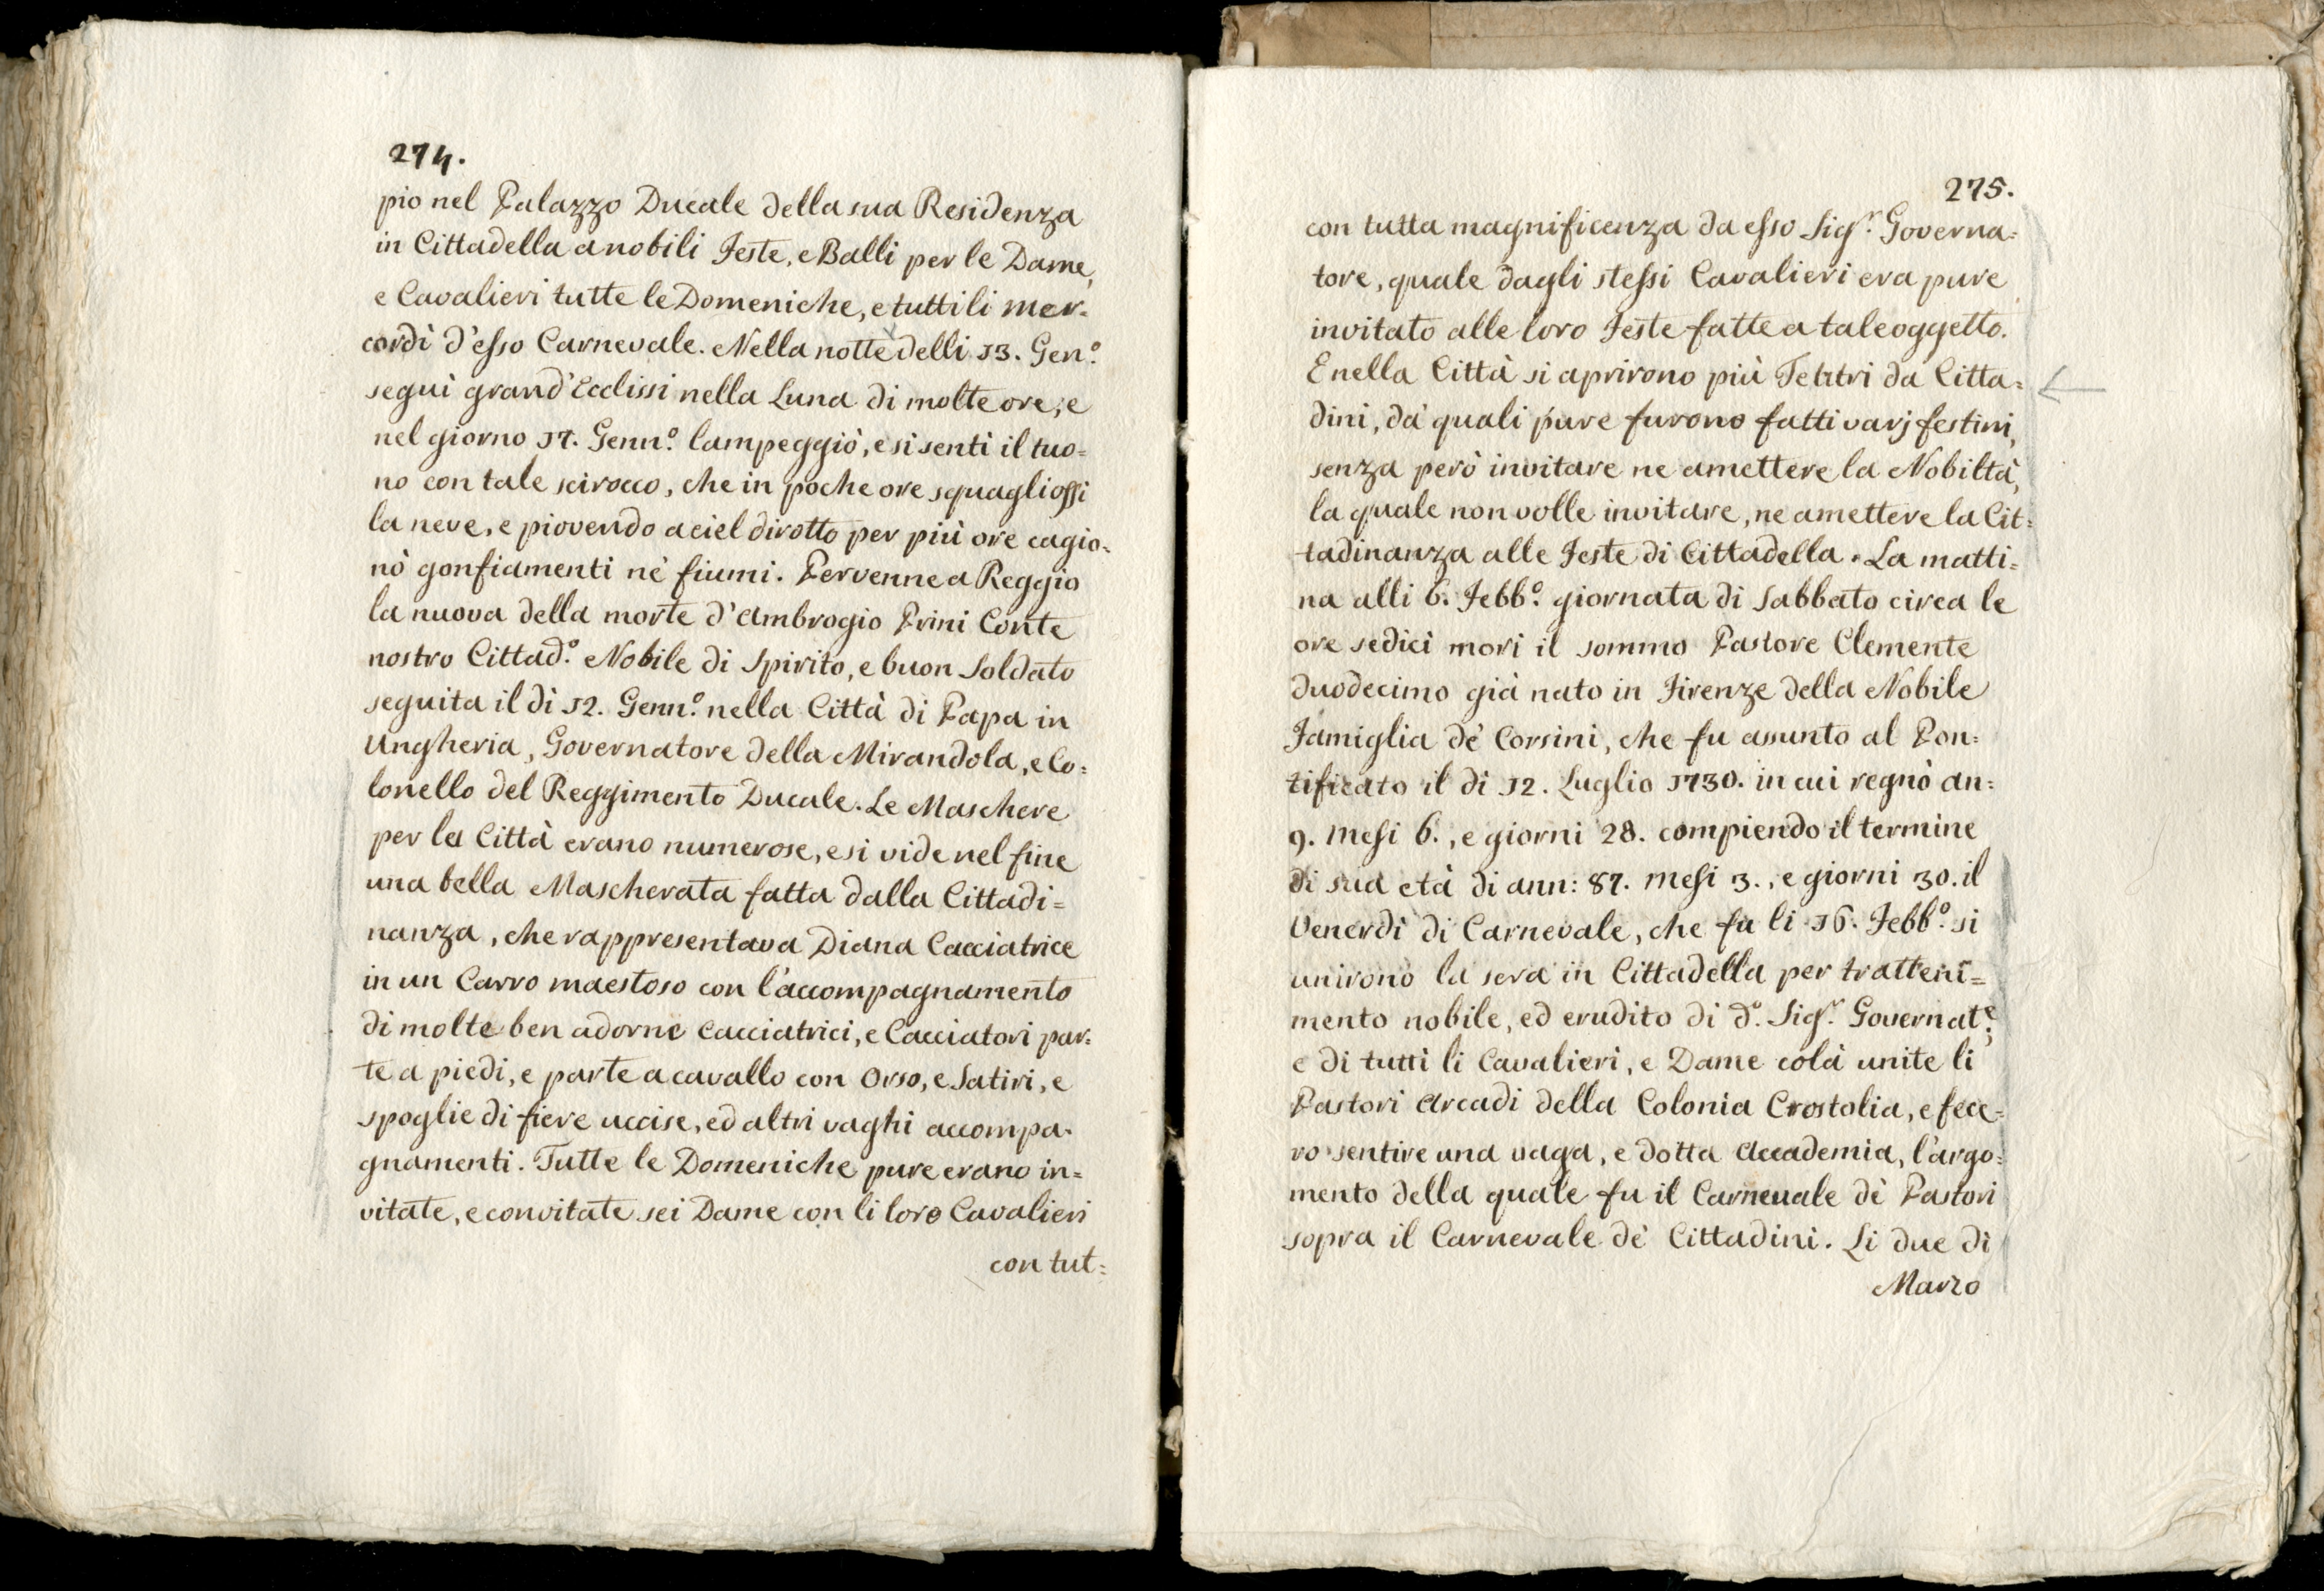 274.
pio nel Palazzo Ducale della sua Residenza
in Cittadella a nobili Feste, e Balli per le Dame,
e Cavalieri tutte le Domeniche, e tutti li Mer-
cordì d'esso Carnevale. Nella notte delli 13. Gen.º
seguì grand'Ecclissi nella Luna di molte ore; e
nel giorno 17. Genn.º lampeggiò, e si sentì il tuo=
no con tale scirocco, che in poche ore squagliossi
la neve, e piovendo a ciel dirotto per più ore cagio=
nò gonfiamenti nè fiumi. Pervenne a Reggio
la nuova della morte d'Ambrogio Prini Conte
nostro Cittad.º Nobile di Spirito, e buon Soldato
seguita il dì 12. Genn.º nella Città di Papa in
Ungheria, Governatore della Mirandola, e Co=
lonello del Reggimento Ducale. Le Maschere
per la Città erano numerose, e si vide nel fine
una bella Mascherata fatta dalla Cittadi=
nanza, che rappresentava Diana Cacciatrice
in un Carro maestoso con l'accompagnamento
di molte ben adorne Cacciatrici, e Cacciatori par=
te a piedi, e parte a cavallo con Orso, e Satiri, e
spoglie di fiere uccise, ed altri vaghi accompa-
gnamenti. Tutte le Domeniche pure erano in=
vitate, e convitate sei Dame con li loro Cavalieri
con tut=
275.
con tutta magnificenza da esso Sig.r Governa=
tore, quale dagli stessi Cavalieri era pure
invitato alle loro Feste fatte a tale oggetto.
E nella Città si aprirono più Teatri da Citta=
dini, da' quali pure furono fatti varj festini,
senza però invitare ne amettere la Nobiltà,
la quale non volle invitare, ne amettere la Cit=
tadinanza alle Feste di Cittadella. La matti=
na alli 6. Febb.º giornata di Sabbato circa le
ore sedici morì il sommo Pastore Clemente
duodecimo già nato in Firenze della Nobile
Famiglia de' Corsini, che fu assunto al Pon=
tificato il dì 12. Luglio 1730. in cui regnò an=
9. Mesi 6., e giorni 28. compiendo il termine
di sua età di ann: 87. Mesi 3., e giorni 30. il
Venerdì di Carnevale, che fu li 26. Febb.º si
unirono la sera in Cittadella per tratteni=
mento nobile, ed erudito di d.º Sig.r Governat.e;
e di tutti li Cavalieri, e Dame colà unite li
Pastori Arcadi della Colonia Crostolia, e fece=
ro sentire una vaga, e dotta Accademia, l'argo=
mento della quale fu il Carnevale dè Pastori
sopra il Carnevale dè Cittadini. Li due di
Marzo